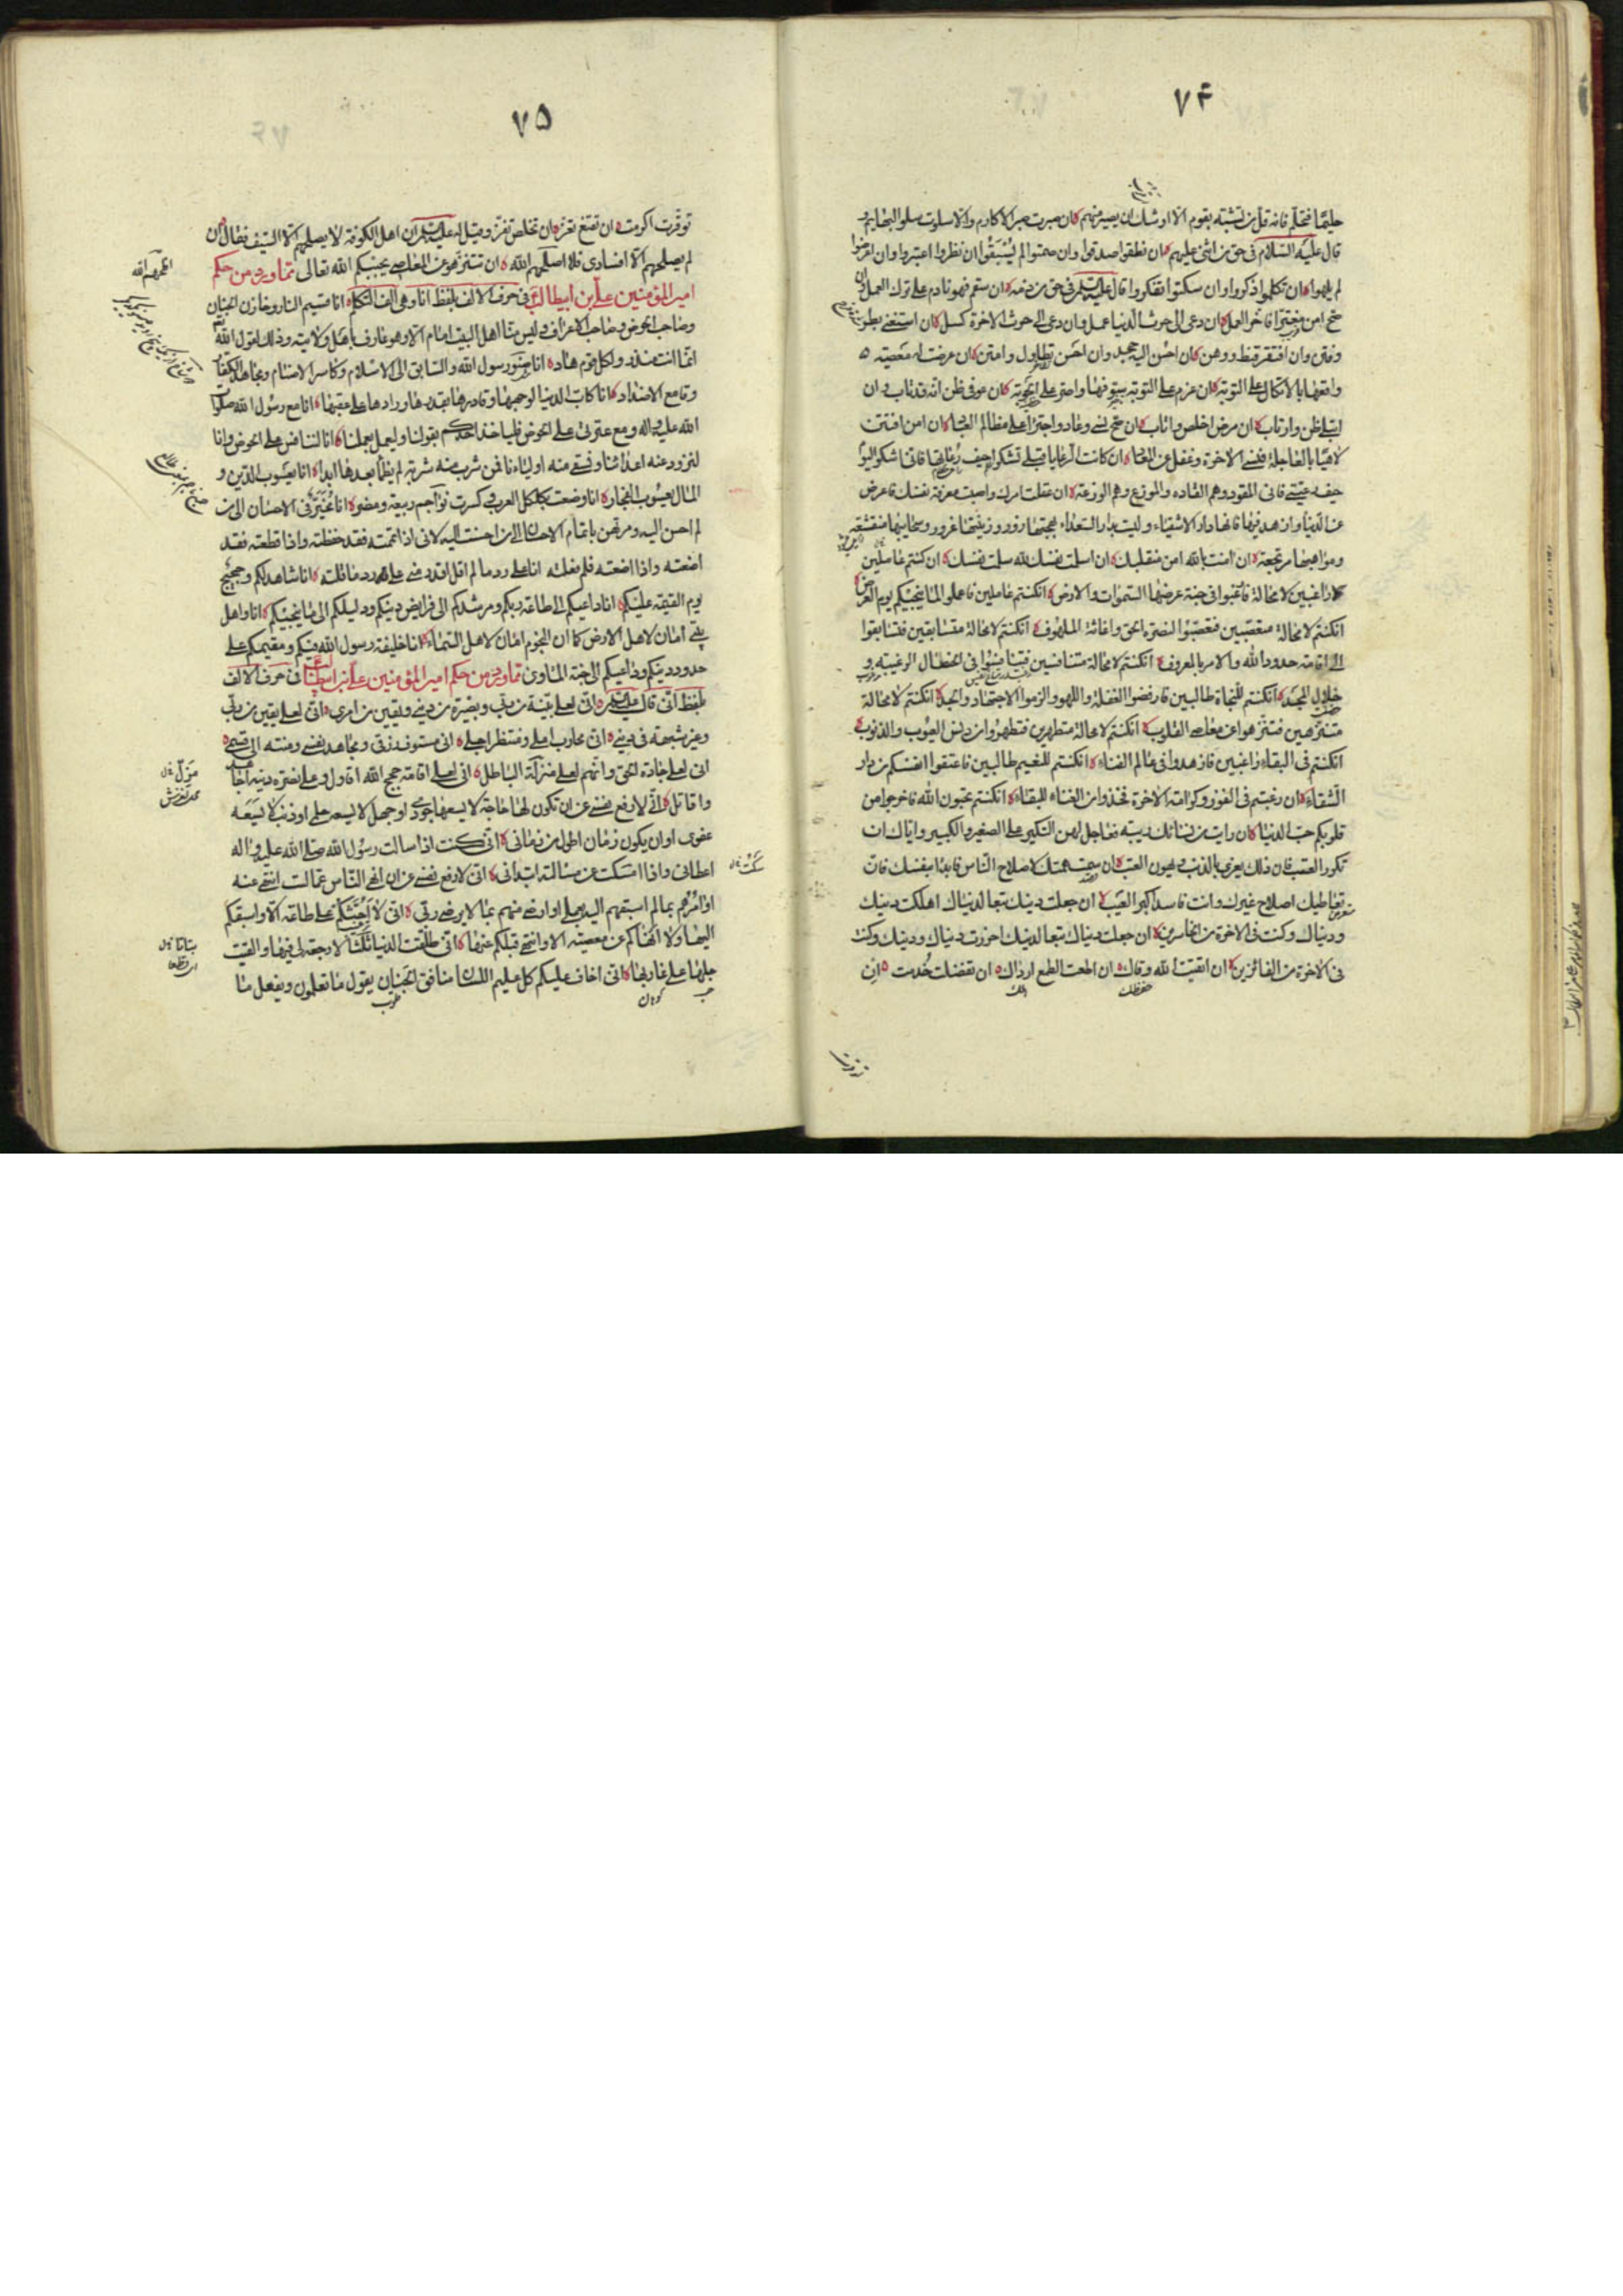 ۷۴
حليمًا فتحلّم فانه قلّ من تشبّه بقوم الّا اوشك ان يصير منهم ان صبرت صبر الاكارم والّا سلوت سلو البهايم و
قال عليه السّلام في حق من اثنى عليهم ان نطقوا صدقوا وان صمتوا لم يُسْبَقُوا ان نظروا اعتبروا وان اعرضوا
لم يلهوا ان تكلموا ذكروا وان سكتوا تفكروا قال عليه السلم في حق من ذمه ان سقم فهو نادم على ترك العمل وان
صح امن مغترّا فاخّر العمل ان دعى الى حرث الدّنيا عمل وان دعى الى حرث الاخرة كسل ان استغنى بطر
وفتن وان افتقر قنط ووهن ان احسن اليه جحد وان احسن تطاول وامتن ان عرضت له معصية
واقعها بالاتكال على التوبة ان عزم على التوبة سوّفها واصر على الحوبة ان عوفي ظن انه قد تاب وان
ابتلي ظن وارتاب ان مرض اخلص واناب ان صح نسي وعاد واجترأ على مظالم العباد ان امن افتتن
لاهيًا بالعاجلة فنسي الاخرة وغفل عن المعاد ان كانت الرّعايا قبلي تشكوا حيف رُعاتها فاني اشكو اليوم
حيف رعيتي فاني المقود وهم القاده والموزع وهم الوزعة ان عقلت امرك واصبت معرفة نفسك فاعرض
عن الدّنيا وازهد فيها فانها دار الاشقياء وليست بدار السّعداء بهجتها زور وزينتها غرور وسحايبها منقشعة
ومواهبها مرتجعة ان امنت بالله امن منقلبك ان اسلمت نفسك لله سلمت نفسك ان كنتم عاملين
راغبين لا محالة فارغبوا في جنّة عرضها السّموات والارض ان كنتم عاملين فاعملوا لما ينجيكم يوم العرض
ان كنتم لا محالة متعصّبين فتعصّبوا لنصرة الحق واغاثة الملهوف ان كنتم لا محالة متسابقين فتسابقوا
الى اقامة حدود الله والامر بالمعروف ان كنتم لا محالة متنافسين فتنافسوا في الخصال الرغيبة و
خلال المجد ان كنتم للنجاة طالبين فارفضوا الغفلة واللهو والزموا الاجتهاد والجد ان كنتم لا محالة
متنزّهين فتنزّهوا عن معاصي القلوب ان كنتم لا محالة متطهرين فتطهروا من دنس العيوب والذنوب
ان كنتم في البقاء راغبين فازهدوا في عالم الفناء ان كنتم للنعيم طالبين فاعتقوا انفسكم من دار
الشّقاء ان رغبتم في الفوز وكرامة الاخرة فخذوا من الفناء للبقاء ان كنتم تحبون الله فاخرجوا من
قلوبكم حبّ الدنيا ان رايت من نسائك ريبة فعاجل لهن النكير على الصغير والكبير واياك ان
تكرر العتب فان ذلك يغري بالذنب ويهون العتب ان سمت همتك لاصلاح النّاس فابدأ بنفسك فان
تعاطيك اصلاح غيرك وانت فاسد اكبر العيب ان جعلت دينك تبعا لدنياك اهلكت دينك
ودنياك وكنت في الاخرة من الخاسرين ان جعلت دنياك تبعا لدينك احرزت دنياك ودينك وكنت
في الاخرة من الفائزين ان اتقيت الله وقاك ان اطعت الطمع ارداك ان تفضلت خُدمت ان
۷۵
توقّرت اكرمت ان تقنع تعز ان تخلص تفز وقيل له عليه السلم ان اهل الكوفة لا يصلحهم الّا السّيف فقال ان
لم يصلحهم الّا افسادي فلا اصلحهم الله ان تتنزّهوا عن المعاصي يحببكم الله تعالى ممّا ورد من حكم
امير المؤمنين علي بن ابيطالب في حرف الالف بلفظ انا وهي الف التكلم انا قسيم النار وخازن الجنان
وصاحب الحوض وصاحب الاعراف وليس منّا اهل البيت امام الّا وهو عارف باهل ولايته وذلك لقول الله
انّما انت منذر ولكل قوم هاد انا صنو رسول الله والسّابق الى الاسلام وكاسر الاصنام ومجاهد الكفار
وقامع الاضداد انا كابّ الدنيا لوجهها وقادرها بقدرها ورادها على عقبها انا مع رسول الله صلوات
الله عليه واله ومع عترتي على الحوض فلياخذ احدكم بقولنا وليعمل بعملنا انا لننافس على الحوض وانا
لنزود عنه اعداءنا ونسقي منه اولياءنا فمن شرب منه شربة لم يظمأ بعدها ابدا انا يعسوب الدّين و
المال يعسوب الفجار انا وضعت بكلكل العرب وكسرت نواجم ربيعة ومضر انا مُخَيّر في الاحسان الى من
لم احسن اليه ومرتهن باتمام الاحسان الى من احسنت اليه لاني اذا اتممته فقد حفظته واذا قطعته فقد
اضعته واذا اضعته فلم فعلته انا على رد ما لم اقل اقدر مني على رد ما قلته انا شاهد لكم وحجيج
يوم القيمة عليكم انا داعيكم الى طاعة ربكم ومرشدكم الى فرايض دينكم ودليلكم الى ما ينجيكم انا واهل
بيتي امان لاهل الارض كما ان النجوم امان لاهل السّماء انا خليفة رسول الله فيكم ومقيمكم على
حدود دينكم وداعيكم الى جنة الماوى ممّا ورد من حكم امير المؤمنين علي بن ابيطالب في حرف الالف
بلفظ اني قال عليه السلم اني لعلى بيّنة من ربّي وبصيرة من ديني ويقين من امري اني لعلى يقين من ربّي
وغير شبهة في ديني اني محارب املي ومنتظر اجلي اني مستوف رزقي ومجاهد نفسي ومنته الى قسمي
اني لعلى جادة الحق وانهم لعلى مزلّة الباطل اني لعلى اقامة حجج الله اقاول وعلى نصرة دينه اجاهد
واقاتل انّي لارفع نفسي عن ان تكون لها حاجة لا يسعها جودي او جهل لا يسعه حلمي او ذنب لا يسعه
عفوي او ان يكون زمان اطول من زماني اني كنت اذا سالت رسول الله صلى الله عليه واله
اعطاني واذا امسكت عن مسالته ابتدأني اني لارفع نفسي عن ان انهى النّاس عمّا لست انتهي عنه
او آمرهم بما لم اسبقهم اليه بعملي او ارضى منهم بما لا يرضى ربّي اني لا احثكم على طاعة الّا واسبقكم
اليها ولا انهاكم عن معصية الا وانتهي قبلكم عنها اني طلّقت الدنيا ثلثا لا رجعة لي فيها والقيت
حبلها على غاربها اني اخاف عليكم كل عليم اللسان منافق الجنان يقول ما تعلمون ويفعل ما